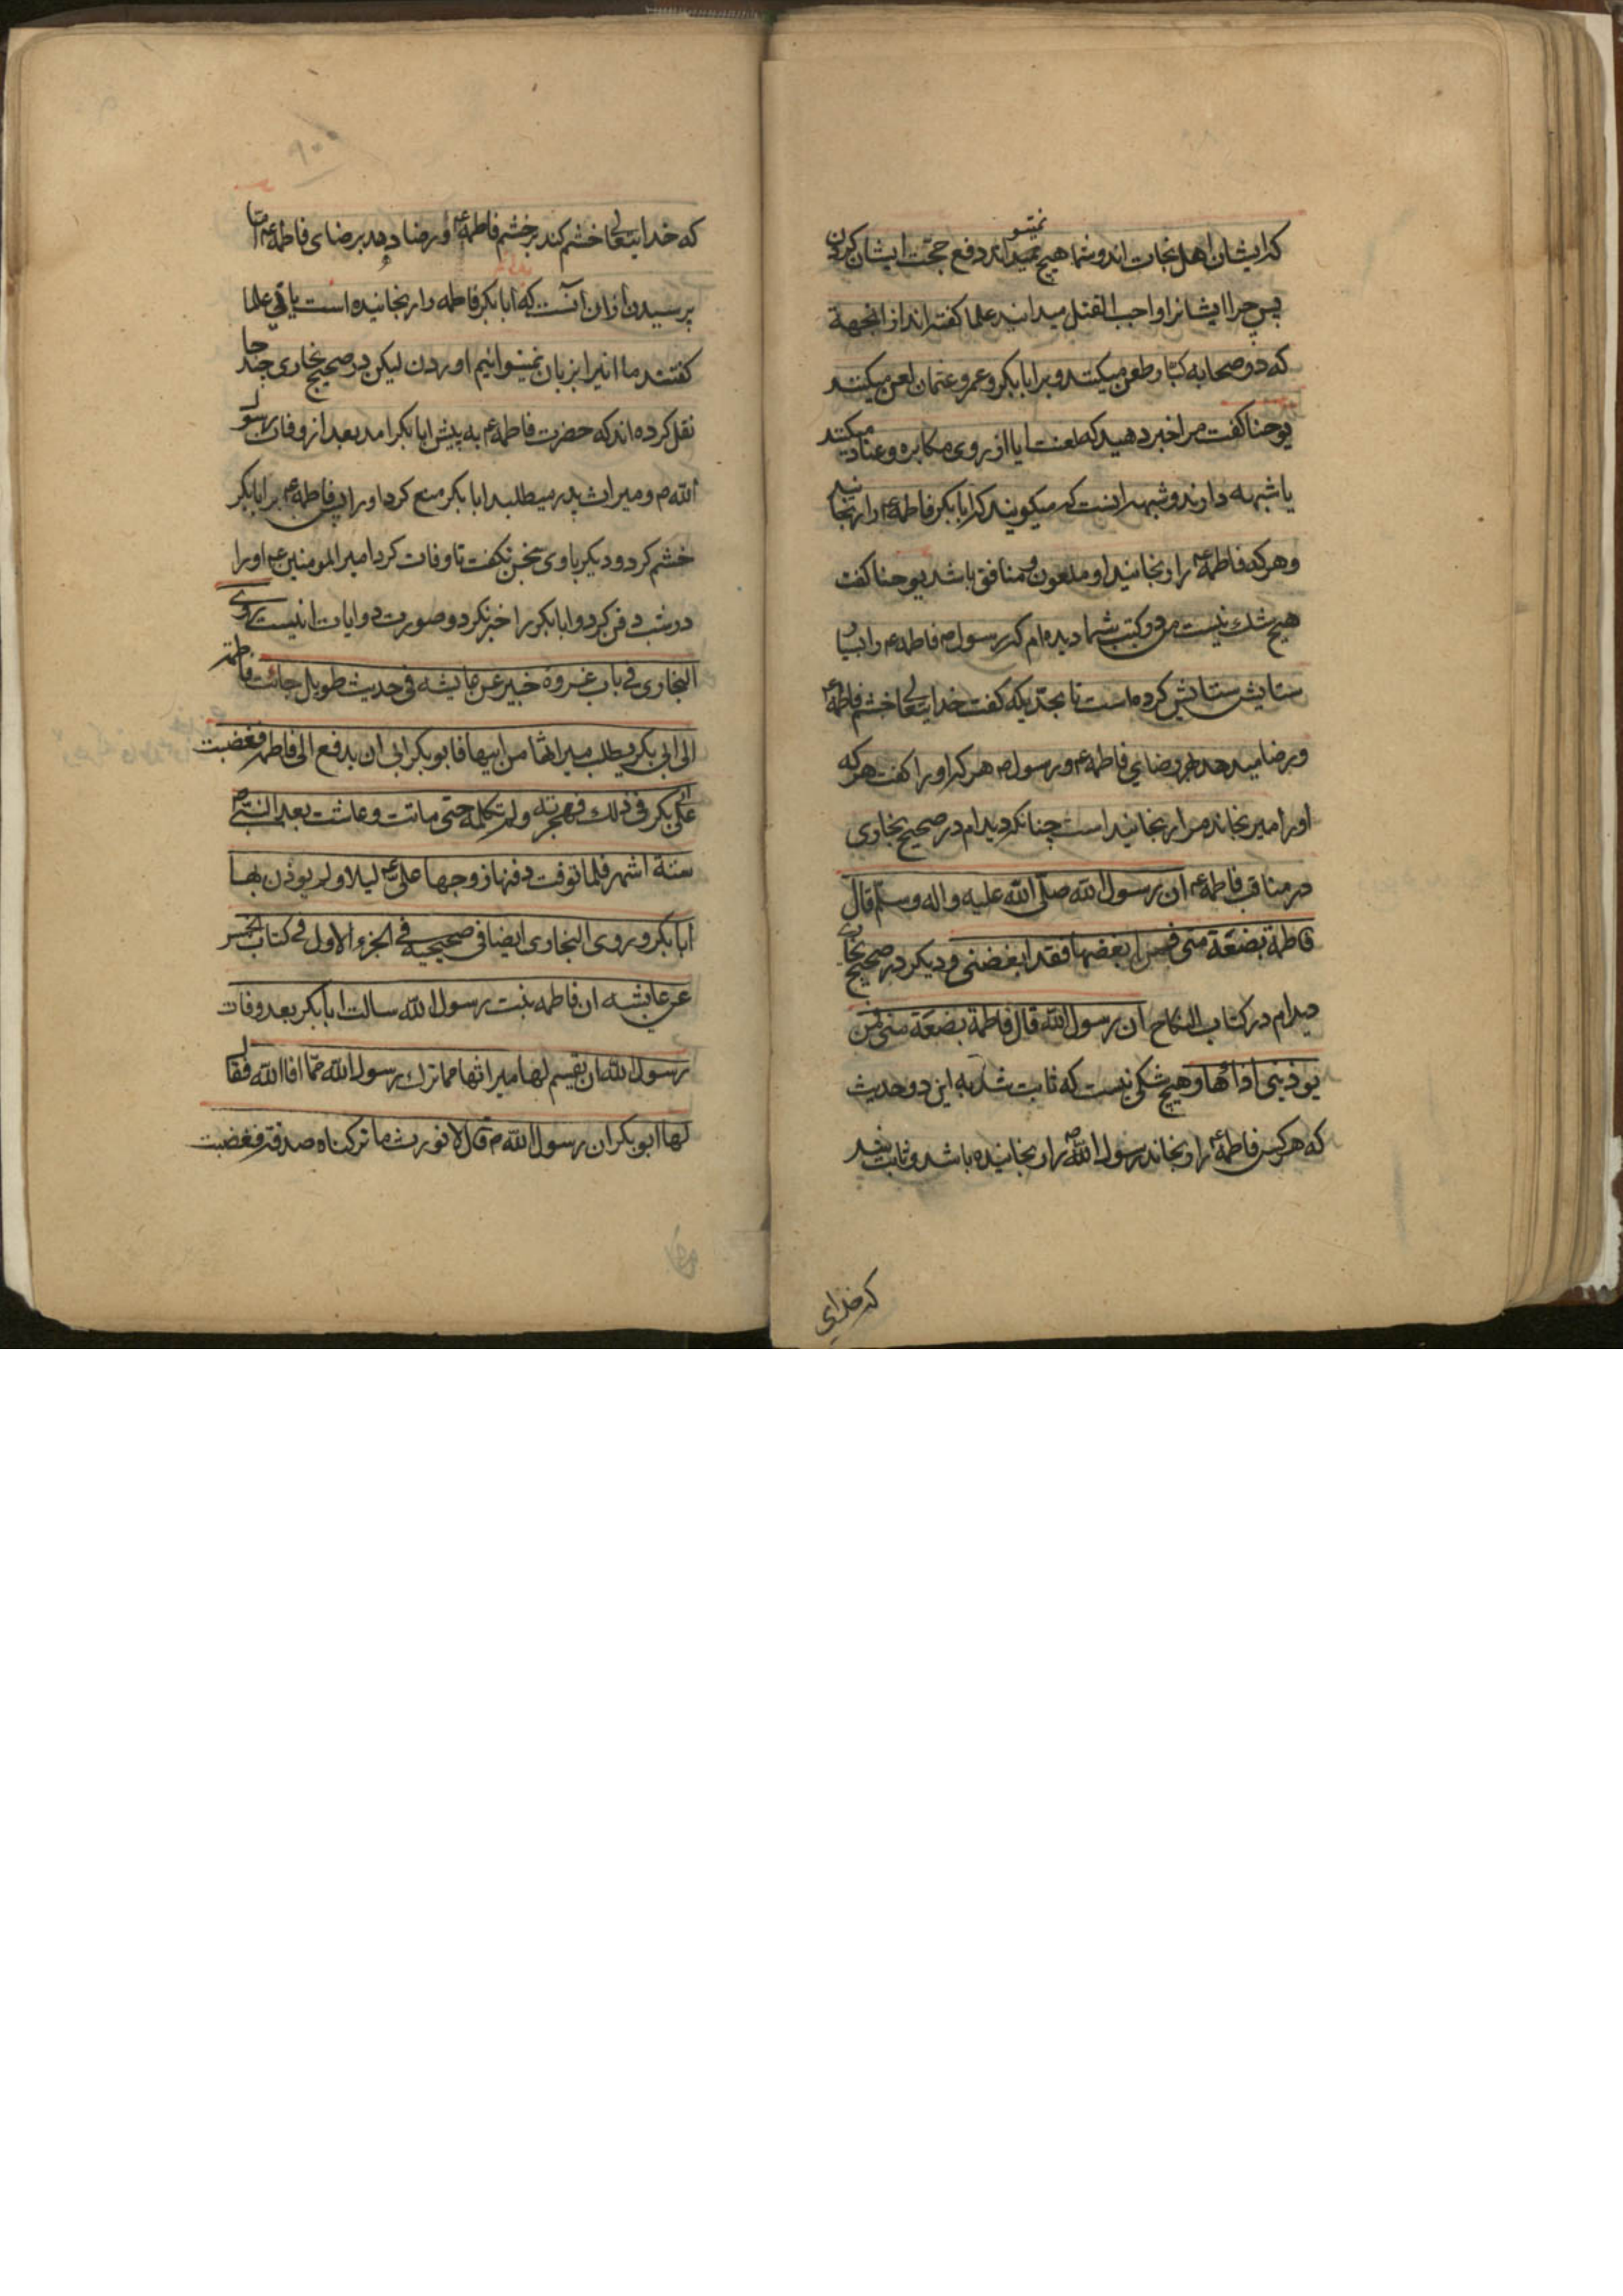 که ایشان اهل نجات اند و شما هیچ نمیتوانید دفع حجت ایشان کردن
پس چرا ایشانرا واجب القتل میدانید علما گفتند از انجهة
که در صحابه کبار طعن میکنند و بر ابابکر و عمر و عثمان لعن میکنند
یوحنا گفت مرا خبر دهید که لعنت ایا از روی مکابره و عناد میکنند
یا شبهه دارند و شبهه انست که میگویند که ابابکر فاطمه ع را رنجانید
و هر که فاطمه ع را رنجانید او ملعون و منافق باشد یوحنا گفت
هیچ شک نیست من در کتب شما دیده ام که رسول ص فاطمه ع را بسیار
ستایش کرده است تا بحدیکه گفت خدایتعالی خشم فاطمه ع
و رضا میدهد بر رضای فاطمه ع و رسول ص هر که او را گفت هر که
او را میرنجاند مرا رنجانید است چنانکه دیدام در صحیح بخاری
در مناقب فاطمه ع ان رسول الله صلی الله علیه واله وسلم قال
فاطمة بضعة منی فمن ابغضها فقد ابغضنی و دیگر در صحیح بخاری
دیدام در کتاب النکاح ان رسول الله قال فاطمة بضعة منی فمن
یوذینی اذائها و هیچ شکی نیست که ثابت شد به این دو حدیث
که هر کس فاطمه ع را رنجاند رسول الله ص را رنجانیده باشد و ثابت شد
که خدای
۹۰۰
که خدایتعالی خشم کند بر خشم فاطمه ع و رضا دهد بر رضای فاطمه ع اما
پرسیدن از ان انست که ابابکر فاطمه را رنجانیده است یا نی علما
گفتند ما انرا بزبان نمیتوانیم اوردن لیکن در صحیح بخاری چند جا
نقل کرده اند که حضرت فاطمه ع به پیش ابابکر امد بعد از وفات رسول
الله ص و میراث پدر میطلبد ابابکر منع کرد او را پس فاطمه ع بر ابابکر
خشم کرد و دیگر با وی سخن نگفت تا وفات کرد امیر المومنین ع او را
در شب دفن کرد و ابابکر را خبر نکرد و صورت روایات اینست روی
البخاری فی باب غزوة خیبر عن عایشه فی حدیث طویل جائت فاطمة
الی ابی بکر یطلب میراثها من ابیها فابو بکر ابی ان یدفع الی فاطمه فغضبت
علی ابی بکر فی ذلک فهجرته ولم تکلمه حتی ماتت و عاشت بعد النبی ص
ستة اشهر فلما توفت دفنها زوجها علی ع لیلا ولم یوذن بها
ابابکر و روی البخاری ایضا فی صحیحه فی الجزو الاول فی کتاب الخمس
عن عایشه ان فاطمه بنت رسول الله سالت ابابکر بعد وفات
رسول الله ان یقسم لها میراثها مما ترک رسول الله مما افا الله فقال
لها ابو بکر ان رسول الله ص قال لا نورث ما ترکناه صدقة فغضبت